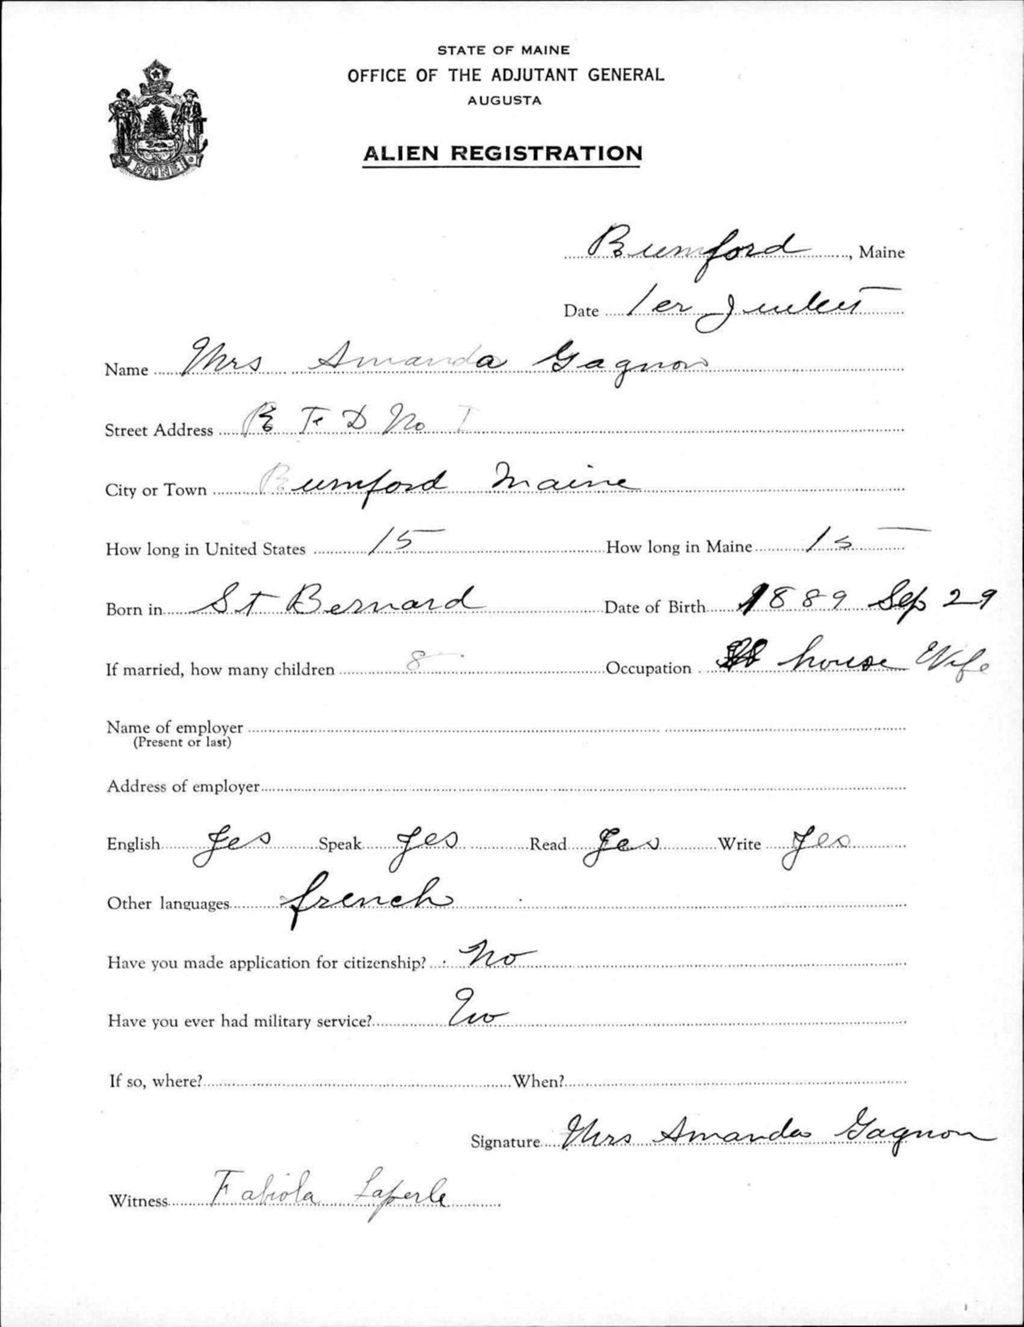 STATE OF MAINE
OFFICE OF THE ADJUTANT GENERAL
AUGUSTA
MAINE
ALIEN REGISTRATION
Rumford, Maine
Date 1er Juillet
Name Mrs Amanda Gagnon
Street Address R F D No 1
City or Town Rumford Maine
How long in United States 15 How long in Maine 15
Born in St Bernard Date of Birth 1889 Sep 29
If married, how many children 8 Occupation house Wife
Name of employer
(Present or last)
Address of employer
English Yes Speak Yes Read Yes Write Yes
Other languages french
Have you made application for citizenship? No
Have you ever had military service? No
If so, where? When?
Signature Mrs Amanda Gagnon
Witness Fabiola Laperle